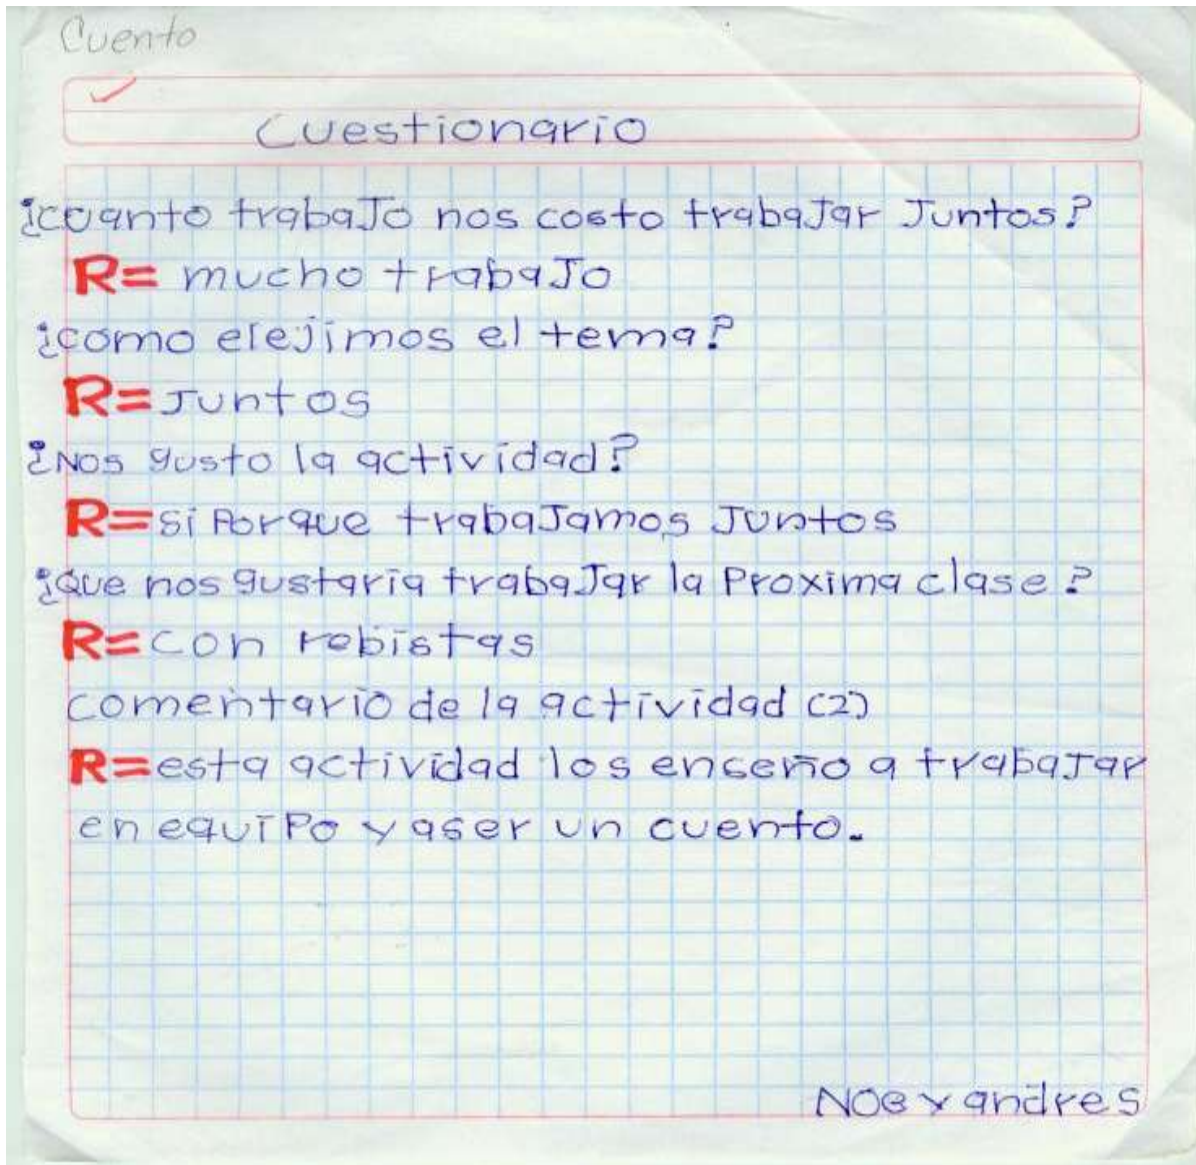 Cuento
Cuestionario
¿cuanto trabaJo nos costo trabaJar Juntos?
R= mucho trabaJo
¿como elejimos el tema?
R= Juntos
¿Nos gusto la actividad?
R= si Porque trabaJamos Juntos
¿Que nos gustaria trabaJar la Proxima clase?
R= con rebistas
comentario de la actividad (2)
R= esta actividad los enseño a trabaJar
en equiPo y aser un cuento.
Noe y andres